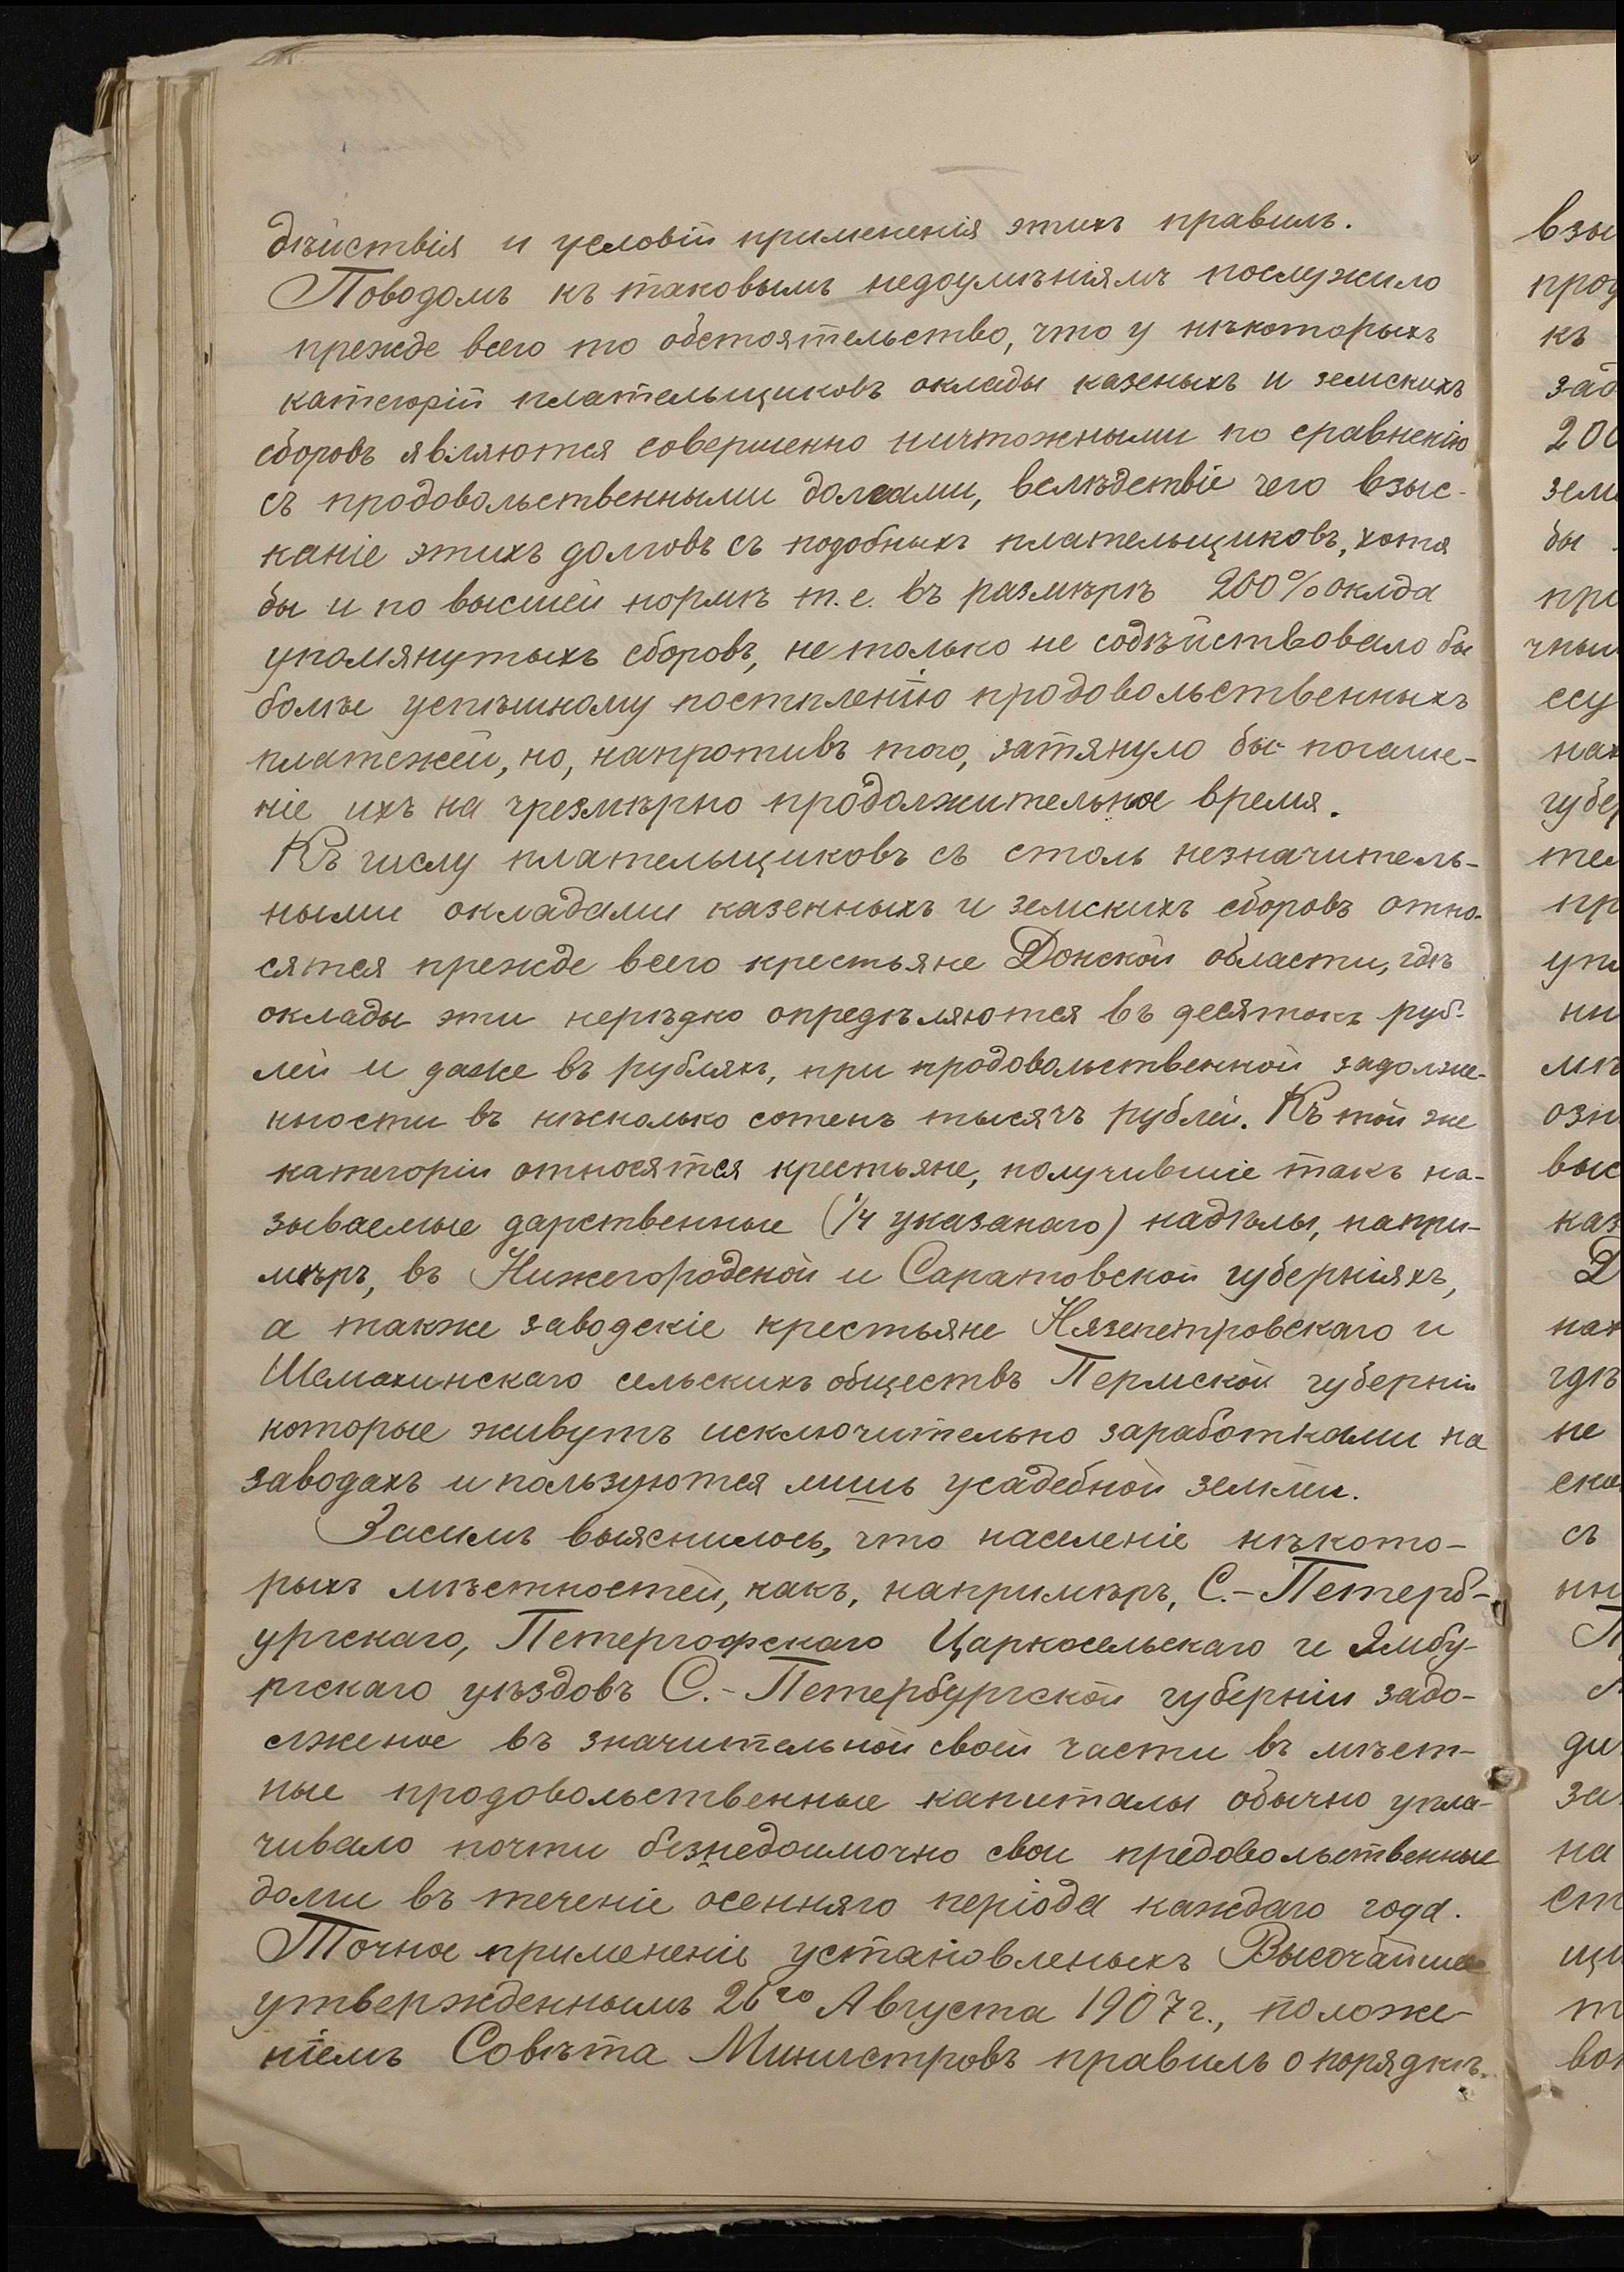 дѣйствія и условій примененія этихъ правилъ.
Поводомъ къ таковымъ недоумѣніямъ послужило
прежде всего то обстоятельство, что у нѣкоторыхъ
категорій плательщиковъ оклады казеныхъ и земскихъ
сборовъ являются совершенно ничтожными по сравненію
съ продовольственными долгами, вслѣдствіе чего взыс-
каніе этихъ долговъ съ подобныхъ плательщиковъ, хотя
бы и по высшей нормѣ т.е. въ размѣрѣ 200% оклда
упомянутыхъ сборовъ, не только не содѣйствовало бы
болѣе успѣшному постпленію продовольственныхъ
платежей, но, напротивъ того, затянуло бы погаше-
ніе ихъ на чрезмѣрно продолжительное время.
Къ числу плательщиковъ съ столь незначитель-
ными окладами казенныхъ и земскихъ сборовъ отно-
сятся прежде всего крестьяне Донской области, гдѣ
оклады эти нерѣдко опредѣляются въ десятокъ руб-
лей и даже въ рубляхъ, при продовольственной задолже-
нности въ нѣсколько сотенъ тысячъ рублей. Къ той же
категоріи относятся крестьяне, получившіе такъ на-
зываемые дарственные (1/4 указанаго) надѣлы, напри-
мѣръ, въ Нижегородской и Саратовской губерніяхъ,
а также заводскіе крестьяне Нязепетровскаго и
Шемахинскаго сельскихъ обществъ Пермской губерніи
которые живутъ исключительно заработками на
заводахъ и пользуются лишь усадебной землей.
Засимъ выяснилось, что населеніе нѣкото-
рыхъ мѣстностей, какъ, напримѣръ, С.-Петерб-
ургскаго, Петергофскаго Царкосельскаго и Ямбу-
ргскаго уѣздовъ С.-Петербургской губерніи задо-
лженое въ значительной своей части въ мѣст-
ные продовольственные капиталы обычно упла-
чивало почти безнедоимочно свои предовольственные
долги въ теченіе осенняго періода каждаго года.
Точное примененіе установленыхъ Высочайше
утвержденнымъ 26го Августа 1907 г., положе-
ніемъ Совѣта Министровъ правилъ о порядкѣ
взы
прод
къ
зад
200
зем
бы
при
чны
ссу
нах
губер
тел
пр
упл
ни
мѣ
озн
выс
каз
Д
нах
гдѣ
не
ско
съ
ин
П
ди
за
на
ст
щи
т
вол